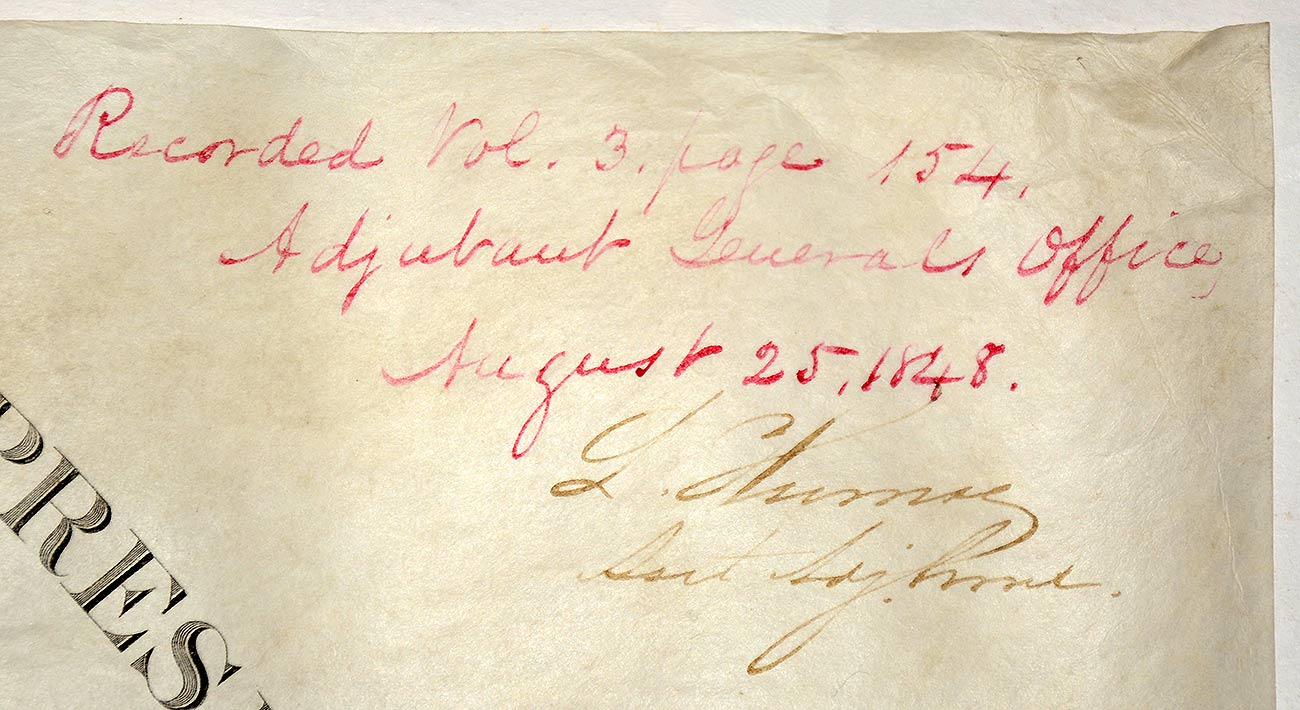 Recorded Vol. 3. page 154.
Adjutant Generals Office,
August 25, 1848.
L. Thomas
Asst Adj. Genl.
PRES